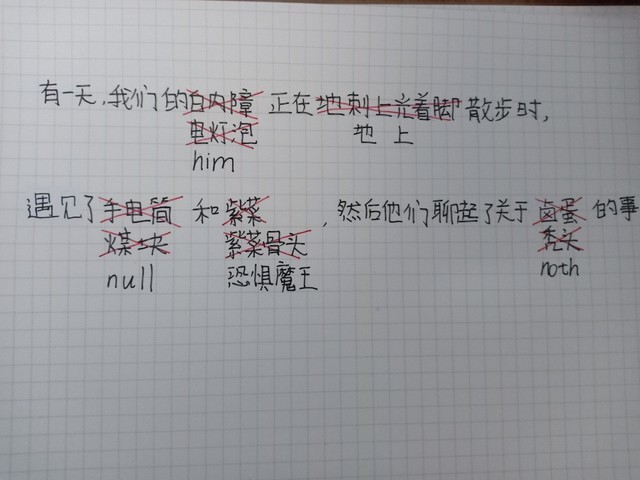 有一天,我们的白内障 正在地刺上光着脚散步时,
电灯泡 地上
him
遇见了手电筒 和紫菜 ,然后他们聊起了关于卤蛋的事
煤块 紫菜骨头 秃头
null 恐惧魔王 noth